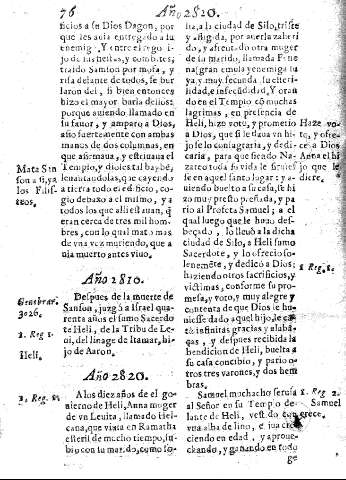 76
Año 2820.
ficios a se Dios Dagon, por
que les auia entregado a su
enemigo. Y entre el rego
jo de sus fiestas, y combites,
traido Sanson por mofa, y
risa delante de todos, se bur
laron del, si bien entonces
hizo el mayor burla dellos:
porque auiendo llamado en
su fauor, y amparo a Dios,
asio fuertemente con ambas
manos de dos columnas, en
que afirmaua, y estriuaua el
Templo, y dioles tal baybé,
leuantandolas, que cayendo
a tierra todo el edificio, co-
gio debaxo a el mismo, y a
todos los que alli estauan, q̃
eran cerca de tres mil hom
bres, con lo qual mato mas
de vna vez muriendo, que a
uia muerto antes viuo.
Mata San
son a si, y a
los Filis-
teos.
Año 2810.
Genebrar.
3026.
1. Reg 1.
Heli.
Despues de la muerte de
Sanson, juzgò a Israel qua-
renta años el sumo Sacerdo
te Heli, de la Tribu de Le-
ui, del linage de Itamar, hi-
jo de Aaron.
Año 2820.
A los diez años de el go-
uierno de Heli, Anna muger
de vn Leuita, llamado Hel-
cana, que viuia en Ramatha
esteril de mucho tiempo, su-
bio con su marido, como so-
lia, a la ciudad de Silo, triste
y afligida, por auerla zaheri
do, y afrentado otra muger
de su marido, llamada Fene
na (gran emula y enemiga su
ya, y muy fecunda) su esteri-
lidad, e infecũdidad. Y oran
do en el Templo cõ muchas
lagrimas, en presencia de
Heli, hizo voto, y prometio
a Dios, que si le daua vn hi-
jo se lo consagraria, y dedi-
caria, para que siendo Na-
zareo toda su vida le siruies
se en aquel santo lugar: y a-
uiendo buelto a su casa, se hi
zo muy presto preñada, y pa
rio al Profeta Samuel; a el
qual luego que le huuo des-
becado, lo lleuò a la dicha
ciudad de Silo, a Heli sumo
Sacerdote, y lo ofrecio so-
lenemẽte, y dedicò a Dios;
haziendo otros sacrificios, y
victimas, conforme su pro-
mesa, y voto, y muy alegre y
contenta de que Dios le hu-
uiesse dado aquel hijo, le cã
tò infinitas gracias y alaba-
ças, y despues recibida la
bendicion de Heli, buelta a
su casa concibio, y pario o-
tros tres varones, y dos hem
bras.
Haze vo-
to, y ofre-
ce a Dios
Anna el hi
jo que le
diere.
1 Reg. 2.
Samuel muchacho seruia
al Señor en su Templo de-
lante de Heli, vestido con
vna alba de lino, e iua cre
ciendo en edad, y aproue-
chando, y ganando en todo
1 Reg. 2.
Samuel
crece.
ge